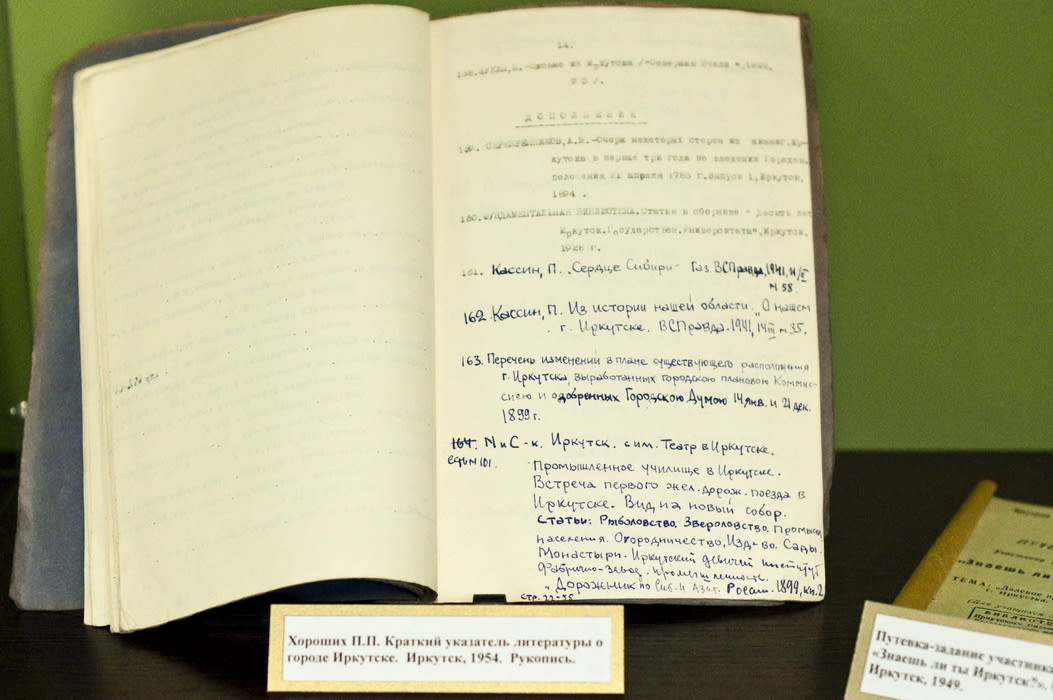 14.
158. -Письмо из Иркутска /"Северная Пчела",
ДОПОЛНЕНИЯ
159. СЕРЕБРЕННИКОВ,А.И.-Очерк некоторых сторон из жизни г.Ир-
кутска в первые три года по введении Городов.
положения 21 апреля 1785 г.Выпуск 1,Иркутск,
1894 .
160.ФУНДАМЕНТАЛЬНАЯ БИБЛИОТЕКА.Статья в сборнике " Десять лет
Иркутск.Государствен.Университета",Иркутск,
1928 г.
161. Кассин, П. „Сердце Сибири" Газ. ВСПравда, 1941,
№ 58
162. Кассин, П. Из истории нашей области. „О нашем
г. Иркутске. ВСПравда. 1941, 14/III № 35.
163. Перечень изменений в плане существующего расположения
г. Иркутска, выработанных городскою плановою Коммис-
сиею и одобренных Городскою Думою 14 янв. и 21 дек.
1899 г.
164. N и С-к. Иркутск. с им. Театр в Иркутске.
№ 101. Промышленное училище в Иркутске.
Встреча первого жел. дорож. поезда в
Иркутске. Вид на новый собор.
Статьи: Рыболовство. Звероловство. Промыслы
населения. Огородничество, Изд-во. Сады.
Монастыри. Иркутский девичий институт
Фабрично-завод. промышленность.
„Дорожник по Сиб. и Азиат. России. 1899, кн. 2
стр. 22-55
Хороших П.П. Краткий указатель литературы о
городе Иркутске. Иркутск, 1954. Рукопись.
"Знаешь ли
ТЕМА: „Далекое
г. Иркутска
Путевка-задание участника
«Знаешь ли ты Иркутск?».
Иркутск, 1949.